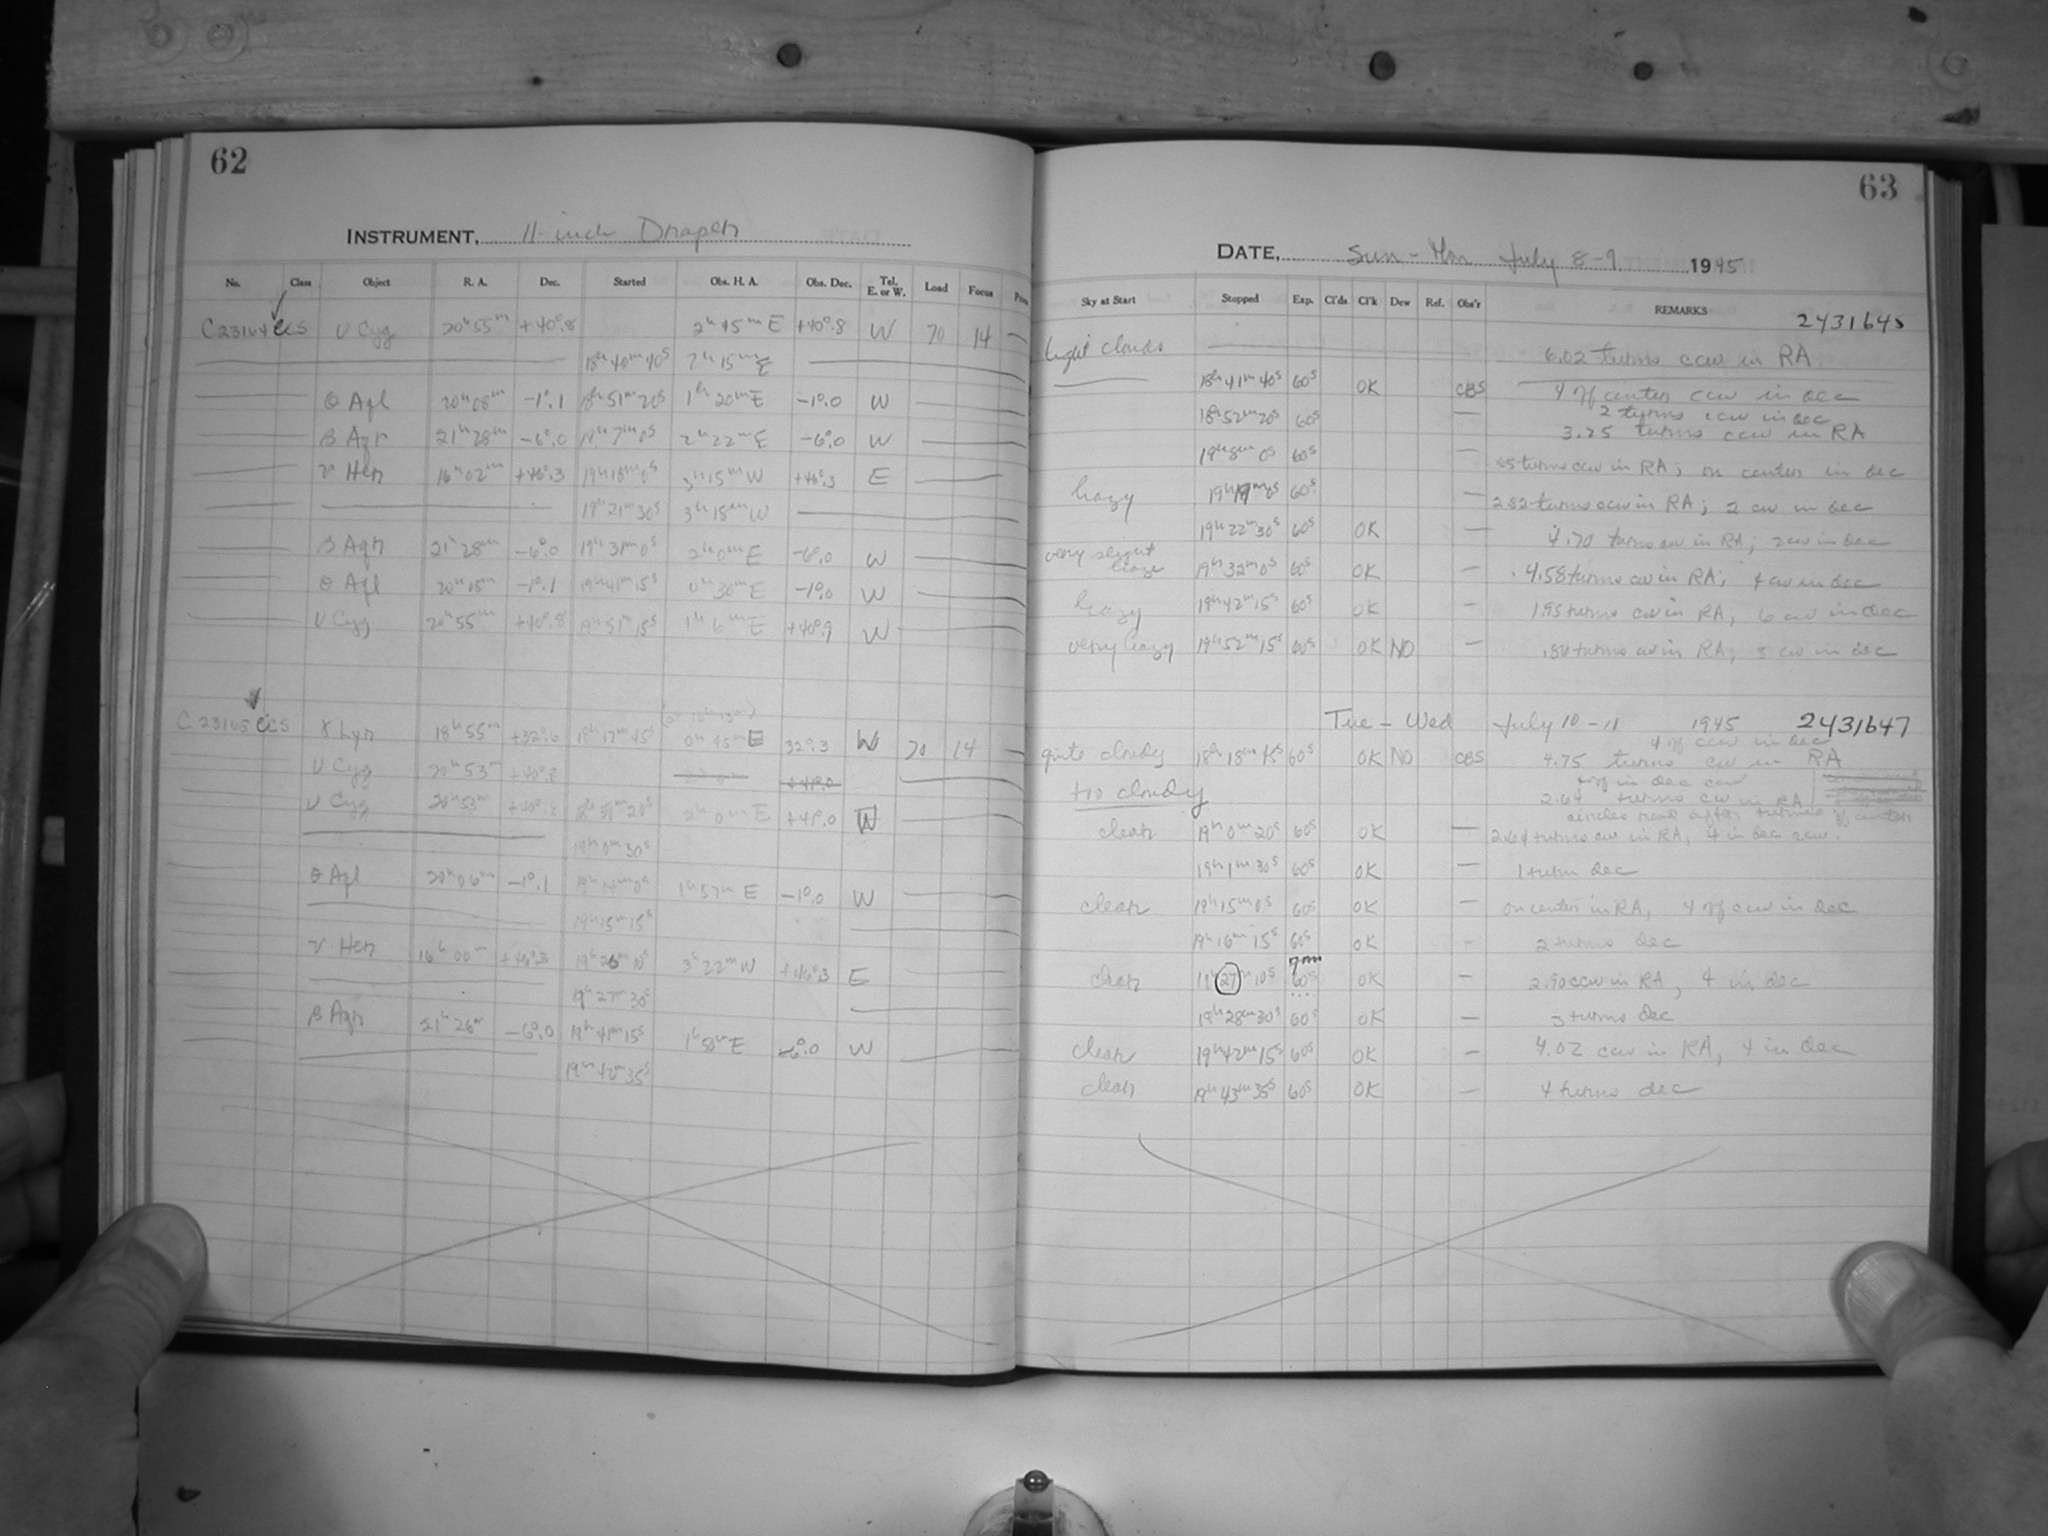 62
INSTRUMENT, 11-inch Draper
No. Class Object R. A. Dec. Started Obs. H. A. Obs. Dec. Tel. E. or W. Load Focus
C23164 CCS υ Cyg 20h 55m +40°.8 2h 45m E +40°.8 W 70 14 —
18h 40m 40s 2h 15m E
θ Aql 20h 08m -1°.1 18h 51m 20s 1h 20m E -1°.0 W
β Aqr 21h 28m -6°.0 19h 7m 0s 2h 22m E -6°.0 W
υ Her 16h 02m +46°.3 19h 18m 0s 3h 15m W +46°.3 E
19h 21m 30s 3h 18m W
β Aqr 21h 28m -6°.0 19h 31m 0s 2h 0m E -6°.0 W
θ Aql -1°.1 19h 41m 15s 0h 30m E -1°.0 W
υ Cyg 20h 55m +40°.8 19h 51m 15s 1h 6m E +40°.9 W
C23165 CCS γ Lyr 18h 55m +32°.6 18h 17m 45s 0h 45m E 32°.3 W 70 14 —
υ Cyg 20h 53m +40°.8
υ Cyg 20h 53m 2h 0m E +41°.0 W
19h 0m 30s
θ Aql 20h 06m -1°.1 19h 14m 0s 1h 57m E -1°.0 W
19h 15m 15s
υ Her 16h 00m +46°.3 19h 26m 10s 3h 22m W +46°.3 E
19h 27m 30s
β Aqr 21h 26m -6°.0 19h 41m 15s 1h 50m E -6°.0 W
19h 42m 35s
63
DATE, Sun - Mon July 8-9 1945
Sky at Start Stopped Exp. Cl'ds Cl'k Dew Ref. Obs'r REMARKS
2431645
light clouds 6.02 turns ccw in RA
18h 41m 40s 60s OK CBS 4 off center ccw in dec
2 turns ccw in dec
18h 52m 20s 60s — 3.25 turns ccw in RA
19h 8m 0s 60s — turns ccw in RA; on center in dec
hazy 19h 19m 0s 60s — 2.82 turns ccw in RA; 2 cw in dec
19h 22m 30s 60s OK — 4.70 turns cw in RA; 2 cw in dec
very slight haze 19h 32m 0s 60s OK — 4.58 turns cw in RA; 4 cw in dec
hazy 19h 42m 15s 60s OK — 1.95 turns cw in RA, 6 cw in dec
very hazy 19h 52m 15s 60s OK NO — turns cw in RA; 8 cw in dec
Tue - Wed July 10-11 1945 2431647
4 off ccw in dec
quite cloudy 18h 18m 45s 60s OK NO CBS 4.75 turns cw in RA
4 off in dec ccw
too cloudy 2.64 turns cw in RA
circles read after turned off center
clear 19h 0m 20s 60s OK — 2.64 turns cw in RA, 4 in dec ccw.
19h 1m 30s 60s OK — 1 turn dec
clear 19h 15m 0s 60s OK — on center in RA, 4 off ccw in dec
19h 16m 15s 60s OK — 2 turns dec
7m
clear 19h 27m 10s 60s OK — 2.90 ccw in RA, 4 in dec
19h 28m 30s 60s OK — 3 turns dec
clear 19h 42m 15s 60s OK — 4.02 ccw in RA, 4 in dec
clear 19h 43m 35s 60s OK — 4 turns dec